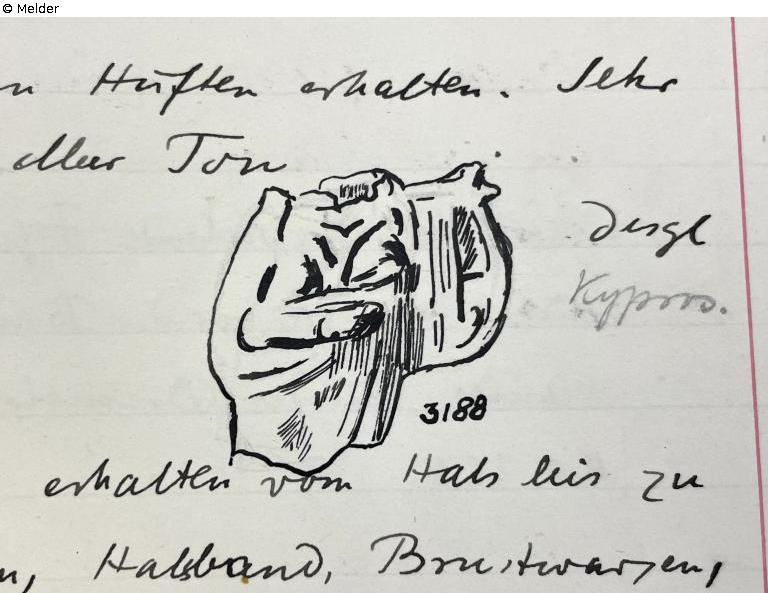 © Melder
n Hüften erhalten. Sehr
Ton
desgl
Kypros.
3188
erhalten vom Hals bis zu
n, Halsband, Brustwarzen,